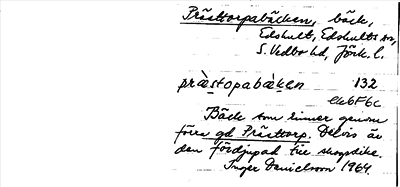 Prästtorpabäcken, bäck,
Edshult, Edshults sn,
S. Vedbo hd, Jönk. l.
prästopabäken 132
ek6F6c
Bäck som rinner genom
förra gd Prästtorp. Delvis är
den fördjupad till skogsdike.
Inger Danielsson 1964.